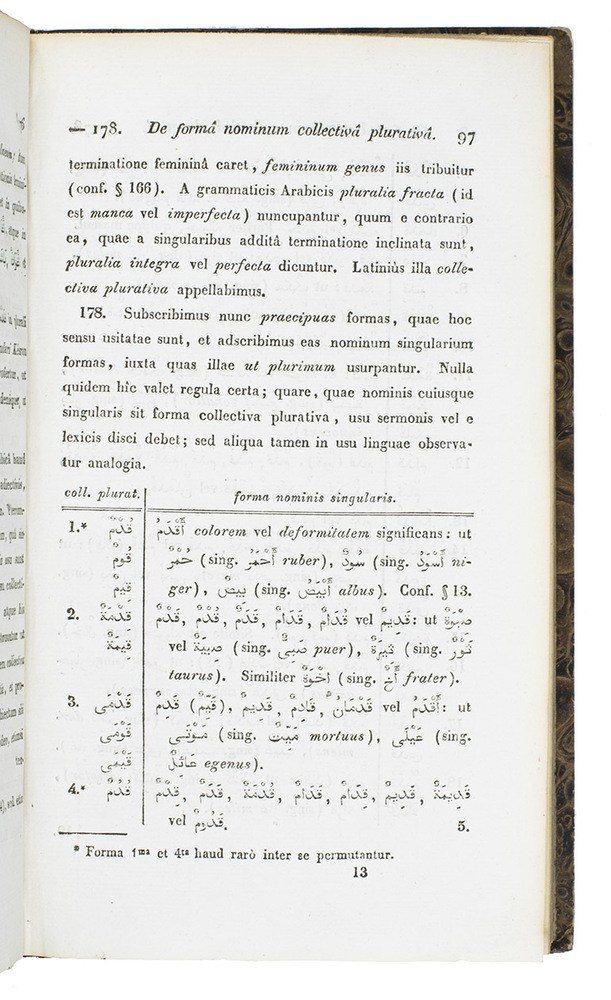 — 178. De formâ nominum collectivâ plurativâ. 97
terminatione femininâ caret, femininum genus iis tribuitur
(conf. § 166). A grammaticis Arabicis pluralia fracta (id
est manca vel imperfecta) nuncupantur, quum e contrario
ea, quae a singularibus additâ terminatione inclinata sunt,
pluralia integra vel perfecta dicuntur. Latiniùs illa colle-
ctiva plurativa appellabimus.
178. Subscribimus nunc praecipuas formas, quae hoc
sensu usitatae sunt, et adscribimus eas nominum singularium
formas, iuxta quas illae ut plurimum usurpantur. Nulla
quidem hîc valet regula certa; quare, quae nominis cuiusque
singularis sit forma collectiva plurativa, usu sermonis vel e
lexicis disci debet; sed aliqua tamen in usu linguae observa-
tur analogia.
coll. plurat. forma nominis singularis.
1.* قُدْمٌ أَقْدَمُ colorem vel deformitatem significans: ut
قُومٌ حُمْرٌ (sing. أَحْمَرُ ruber), سُودٌ (sing. أَسْوَدُ ni-
قِيمٌ ger), بِيضٌ (sing. أَبْيَضُ albus). Conf. § 13.
2. قِدْمَةٌ vel قَدِيمٌ: ut صِبْوَةٌ
قِيمَةٌ vel صِبْيَةٌ (sing. صَبِىٌّ puer), ثِيرَةٌ (sing. ثَوْرٌ
taurus). Similiter إِخْوَةٌ (sing. أَخٌ frater).
3. قَدْمَى قَدِمٌ (قَيِّمٌ), قَدِيمٌ, قَادِمٌ, قَدْمَانُ vel أَقْدَمُ: ut
قَوْمَى مَوْتَى (sing. مَيِّتٌ mortuus), عَيْلَى (sing.
قَيْمَى عَائِلٌ egenus).
4.* قُدُمٌ قَدِيمَةٌ
vel قَدُومٌ. 5.
* Forma 1ma et 4ta haud rarò inter se permutantur.
13